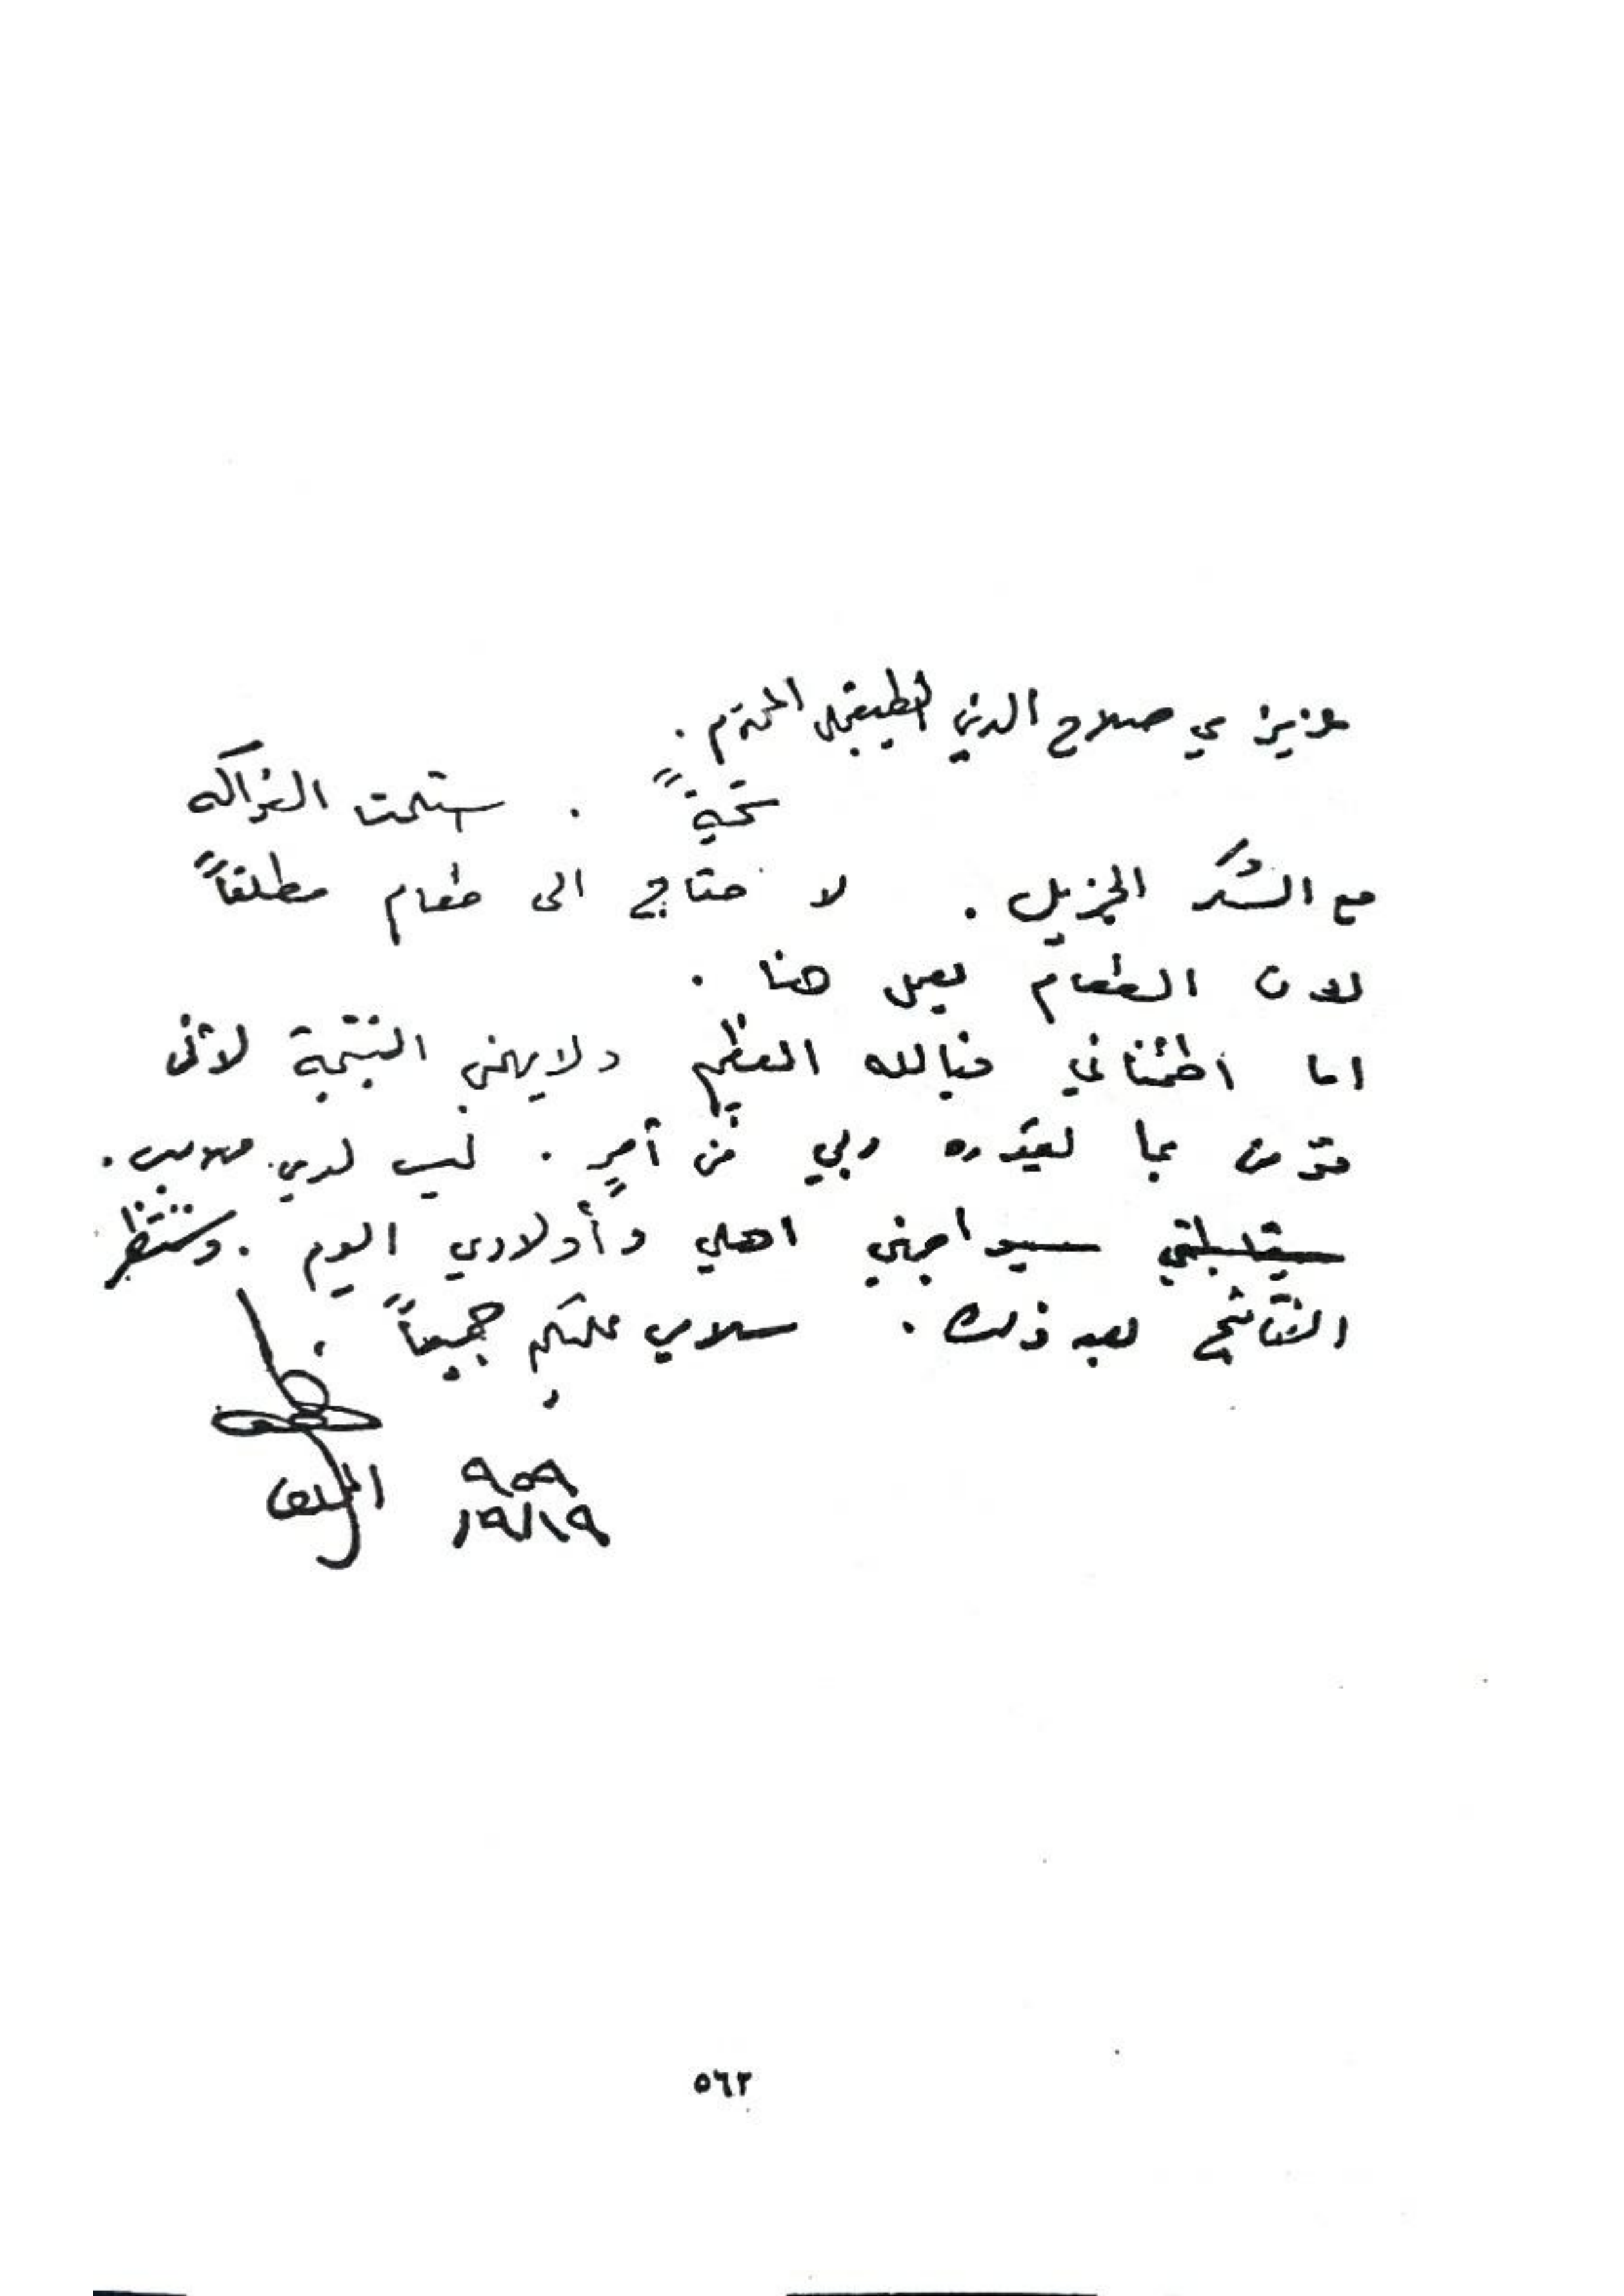 عزيزي صلاح الدين الطبقجلي المحترم .
تحيةً . استلمت الفواكه
مع الشكر الجزيل . لا حتاج الى طعام مطلقاً
لان الطعام يعمل هنا .
اما اطمئناني فبالله العظيم ولا يهمني النتيجة لاني
مؤمن بما يقدره ربي من أمرٍ . ليس لدي ملابس .
سيقابلني سيواجهني اهلي وأولادي اليوم . وسننتظر
النتائج بعد ذلك . سلامي عليكم جميعاً .
٩٥٩
١٩/٨/١٩
٥٦٢